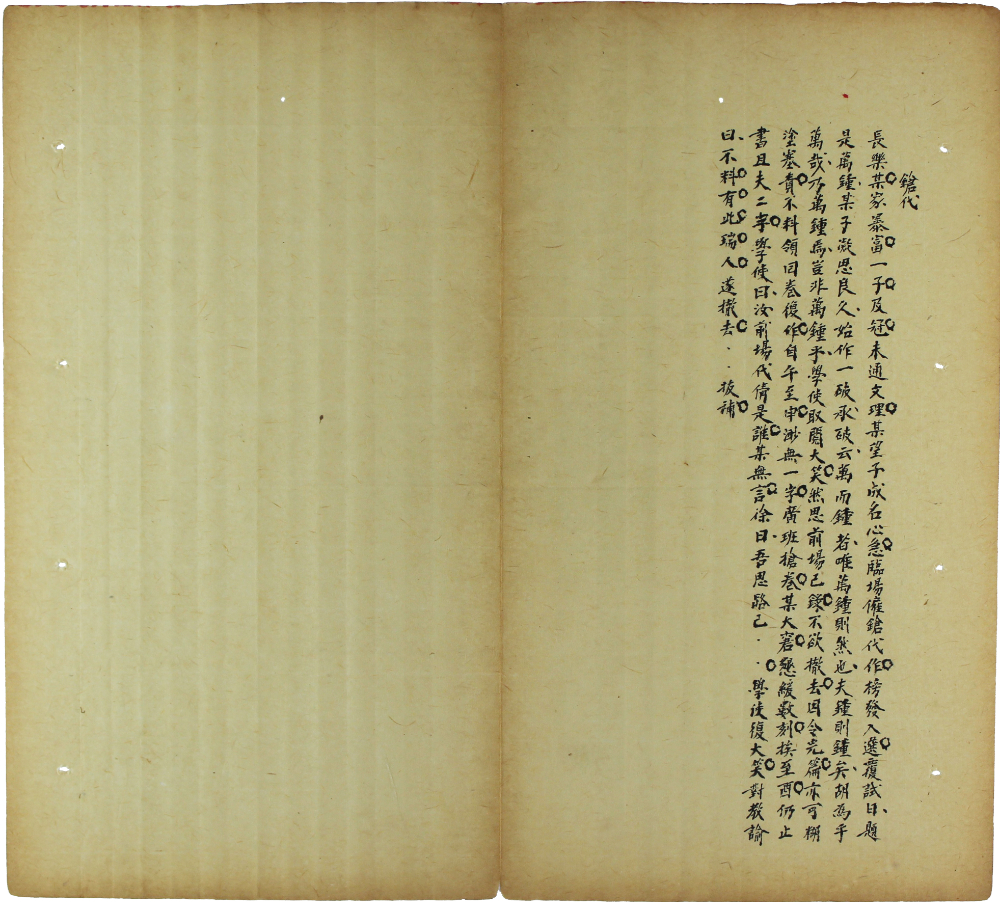 鎗代
長樂某家暴富一子及冠未通文理某望子成名心急臨場僱鎗代作榜發入選覆試日題
是萬鍾某子凝思良久始作一破承破云萬而鍾者唯萬鍾則然也夫鍾則鍾矣胡為乎
萬哉乃萬鍾焉豈非萬鍾乎學使取閱大笑然思前場已錄不欲撤去因令完篇亦可糊
塗塞責不料領回卷復作自午至申渺無一字廣班搶卷某大窘懇緩數刻挨至酉仍止
書且夫二字學使曰汝前場代倩是誰某無言徐曰吾思路已..學使復大笑對教諭
曰不料有此瑞人遂撤去..拔補